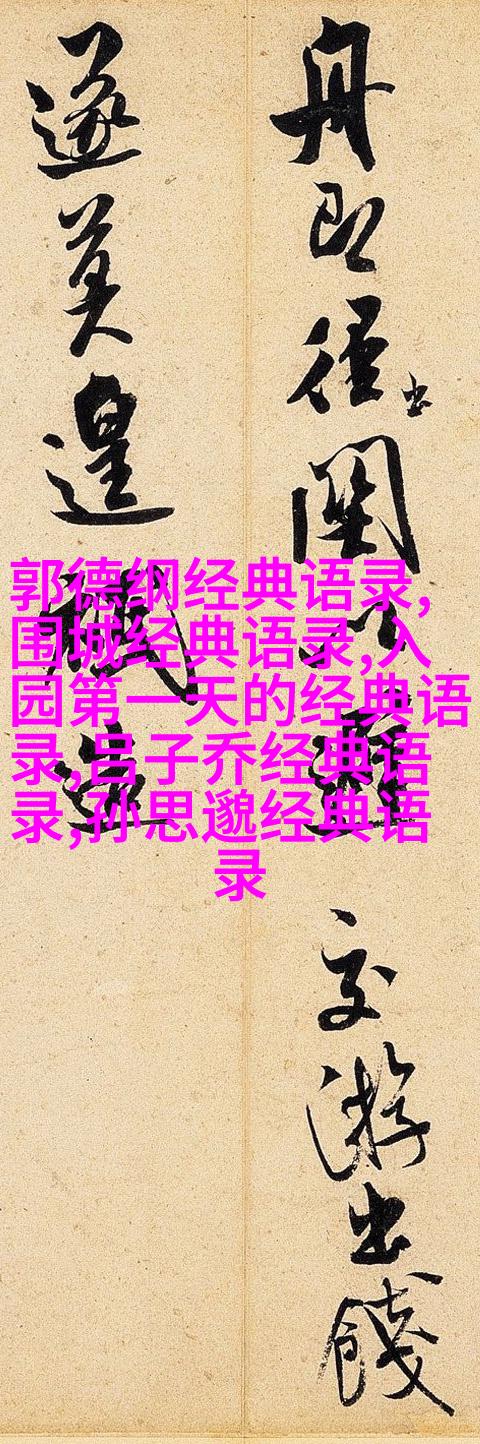 郭德纲经典语录,
围城经典语录,入
园第一天的经典语
录,吕子乔经典语
录,孙思邈经典语
录
舟即徑出關以避交游出餞
遂莫遑